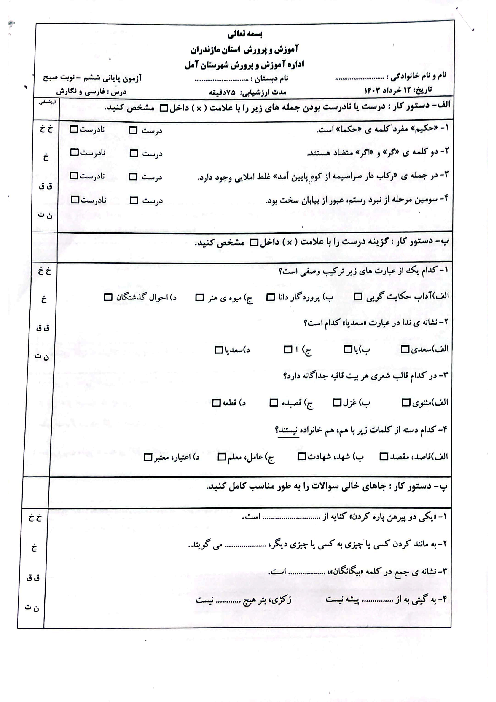 بسمه تعالی
آموزش و پرورش استان مازندران
اداره آموزش و پرورش شهرستان آمل
نام و نام خانوادگی: ...................... نام دبستان: ...................... آزمون پایانی ششم - نوبت صبح
تاریخ: ۱۲ خرداد ۱۴۰۳ مدت ارزشیابی: ۷۵دقیقه درس: فارسی و نگارش
الف- دستور کار: درست یا نادرست بودن جمله های زیر را با علامت (×) داخل □ مشخص کنید.
۱- «حکیم» مفرد کلمه ی «حکما» است. درست □ نادرست □ خ خ
۲- دو کلمه ی «گر» و «اگر» متضاد هستند. درست □ نادرست □ خ
۳- در جمله ی «رکاب دار سراسیمه از کوه پایین آمد» غلط املایی وجود دارد. درست □ نادرست □ ق ق
۴- سومین مرحله از نبرد رستم، عبور از بیابان سخت بود. درست □ نادرست □ ن ت
ب- دستور کار: گزینه درست را با علامت (×) داخل □ مشخص کنید.
۱- کدام یک از عبارت های زیر ترکیب وصفی است؟ خ خ
الف)آداب حکایت گویی □ ب) پروردگار دانا □ ج) میوه ی هنر □ د) احوال گذشتگان □ خ
۲- نشانه ی ندا در عبارت «سعدیا» کدام است؟ ق ق
الف)سعدی □ ب)یا □ ج) ا □ د)سعدیا □ ن ت
۳- در کدام قالب شعری هر بیت قافیه جداگانه دارد؟
الف)مثنوی □ ب) غزل □ ج) قصیده □ د) قطعه □
۴- کدام دسته از کلمات زیر با هم، هم خانواده نیستند؟
الف)قاصد، مقصد □ ب) شهد، شهادت □ ج) عامل، معلم □ د) اعتبار، معتبر □
پ- دستور کار: جاهای خالی سوالات را به طور مناسب کامل کنید.
۱- «یکی دو پیرهن پاره کردن» کنایه از ........................ است. خ خ
۲- به مانند کردن کسی یا چیزی به کسی یا چیزی دیگر، ............... می گویند. خ
۳- نشانه ی جمع در کلمه «بیگانگان»، ............... است. ق ق
۴- به گیتی به از ............... پیشه نیست زکژی، بتر هیچ ........... نیست ن ت